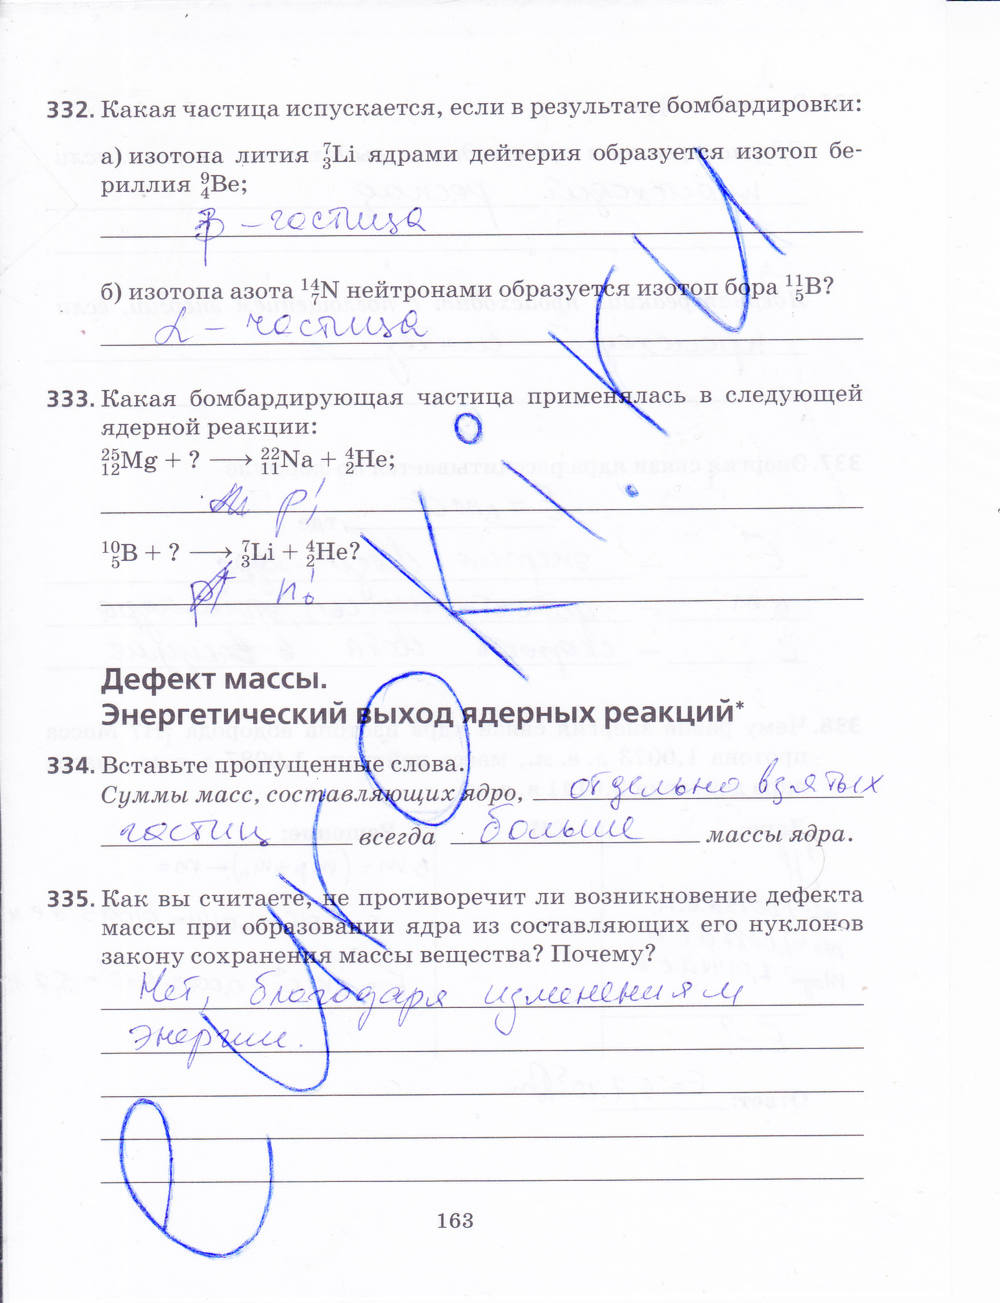 332. Какая частица испускается, если в результате бомбардировки:
а) изотопа лития ⁷₃Li ядрами дейтерия образуется изотоп бе-
риллия ⁹₄Be;
– частица
б) изотопа азота ¹⁴₇N нейтронами образуется изотоп бора ¹¹₅B?
α – частица
333. Какая бомбардирующая частица применялась в следующей
ядерной реакции:
²⁵₁₂Mg + ? ⟶ ²²₁₁Na + ⁴₂He;
¹⁰₅B + ? ⟶ ⁷₃Li + ⁴₂He?
Дефект массы.
Энергетический выход ядерных реакций*
334. Вставьте пропущенные слова.
Суммы масс, составляющих ядро, отдельно взятых
частиц всегда больше массы ядра.
335. Как вы считаете, не противоречит ли возникновение дефекта
массы при образовании ядра из составляющих его нуклонов
закону сохранения массы вещества? Почему?
Нет, благодаря изменениям
энергии.
163